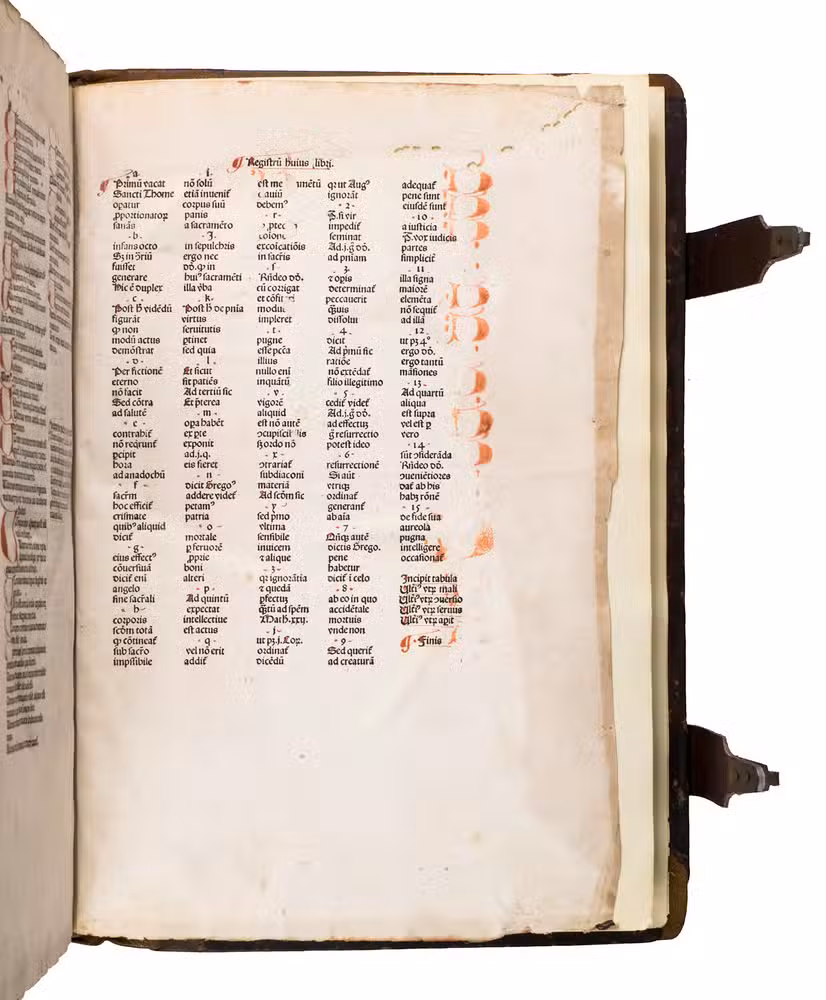 Registrū huius libri.
a
Primū vacat
Sancti Thome
opatur
ꝓportionatoꝝ
sanās
·b·
infans octo
Sȝ in ꝯriū
fuisset
generare
Hic ē duplex
·c·
Post ħ vidēdū
figurāt
ꝙ non
modū actus
demōstrat
·d·
Per fictionē
eterno
nō facit
Sed cōtra
ad salutē
·e·
contrahit̄
nō reqrunt̄
ꝑcipit
hora
ad anadochū
·f·
sacrm̄
hoc efficit̄
crismate
quibꝰ aliquid
dicit̄
·g·
eius effectꝰ
cōuersiuā
dicit̄ eni
angelo
fine sacr̄ali
·h·
corporis
scd̄m totā
ꝙ cōtineat̄
sub sacr̄o
impossibile
i.
nō solū
etiā inuenit̄
corpus suū
panis
a sacramēto
·j·
in sepulchris
ergo nec
dō.ꝙ in
huiꝰ sacramēti
illa ꝟba
·k·
Post ħ de pnīa
virtus
seruitutis
ꝑtinet
sed quia
·l·
Et sicut
sit patiēs
Ad tertiū sic
Et p̄terea
·m·
oꝑa habēt
ex ꝑte
exponit
ad.j.q.
eis fieret
·n·
dicit Gregoꝰ
addere videt̄
petamꝰ
patria
·o·
mortale
ꝑ feruorē
ꝓprie
boni
alteri
·p·
Ad quintū
expectat
intellectiue
est actus
·q·
vel nō erit
addit̄
est me umētū
c auiū
debemꝰ
·r·
excōicatiōis
in sacris
·s·
Rn̄deo dō.
cū corrigat
et cōfit
modū
impleret
·t·
pugne
esse pēca
illius
nullo eni
inquātū
·v·
vigorē
aliquid
est nō autē
ꝯcupiscit
ẜordo nō
·x·
ꝯtrariat̄
subdiaconi
materiā
Ad scd̄m sic
·y·
sed pmo
vltima
sensibile
inuicem
et alique
·ȝ·
qꝛ ignorātia
et quedā
ꝑfectus
q̄tū ad spēm
Math.xxv.
·j·
ut pȝ.j.Cor.
ordinat̄
dicēdū
qꝛ ut Augꝰ
ignorāt
·2·
P̄. si vir
impedit̄
seminat
Ad.j.g̃ dō.
ad pniam
·3·
et opis
determinat̄
peccauerit
q̄uis
dissolui
·4·
dicit
Ad pmū sic
ratiōe
nō extēdat̄
filio illegitimo
·5·
cedit̄ videt̄
Ad.j.g̃ dō.
ad effectus
g̃ resurrectio
potest ideo
·6·
resurrectionē
Si aūt
vtriqꝫ
ordinat̄
generant̄
ab aīa
·7·
Qn̄qꝫ autē
dictis Grego.
pene
habetur
dicit̄ i celo
·8·
ab eo in quo
accidētale
mortuis
vnde non
·9·
Sed querit̄
ad creaturā
adequat̄
pene sunt
eiusdē sunt
·10·
a iusticia
P̄. vox iudicis
partes
simplicit̄
11
illa signa
maiorē
elemēta
nō sequit̄
ad illā
·12·
ut pȝ 4º
ergo dō.
ergo tantū
māsiones
·13·
Ad quartū
aliqua
est supra
vel est ꝑ
vero
·14·
sūt ꝯsiderāda
Rn̄deo dō.
ꝯueniētiores
dat̄ ab his
habȝ rōnē
·15·
de side sua
aureola
pugna
intelligere
occasionat̄
Incipit tabula
Ult̄iꝰ vtrꝫ mali
Ult̄iꝰ vtrꝫ ꝯuersio
Ult̄iꝰ vtrꝫ seruus
Ult̄iꝰ vtrꝫ apit
Finis